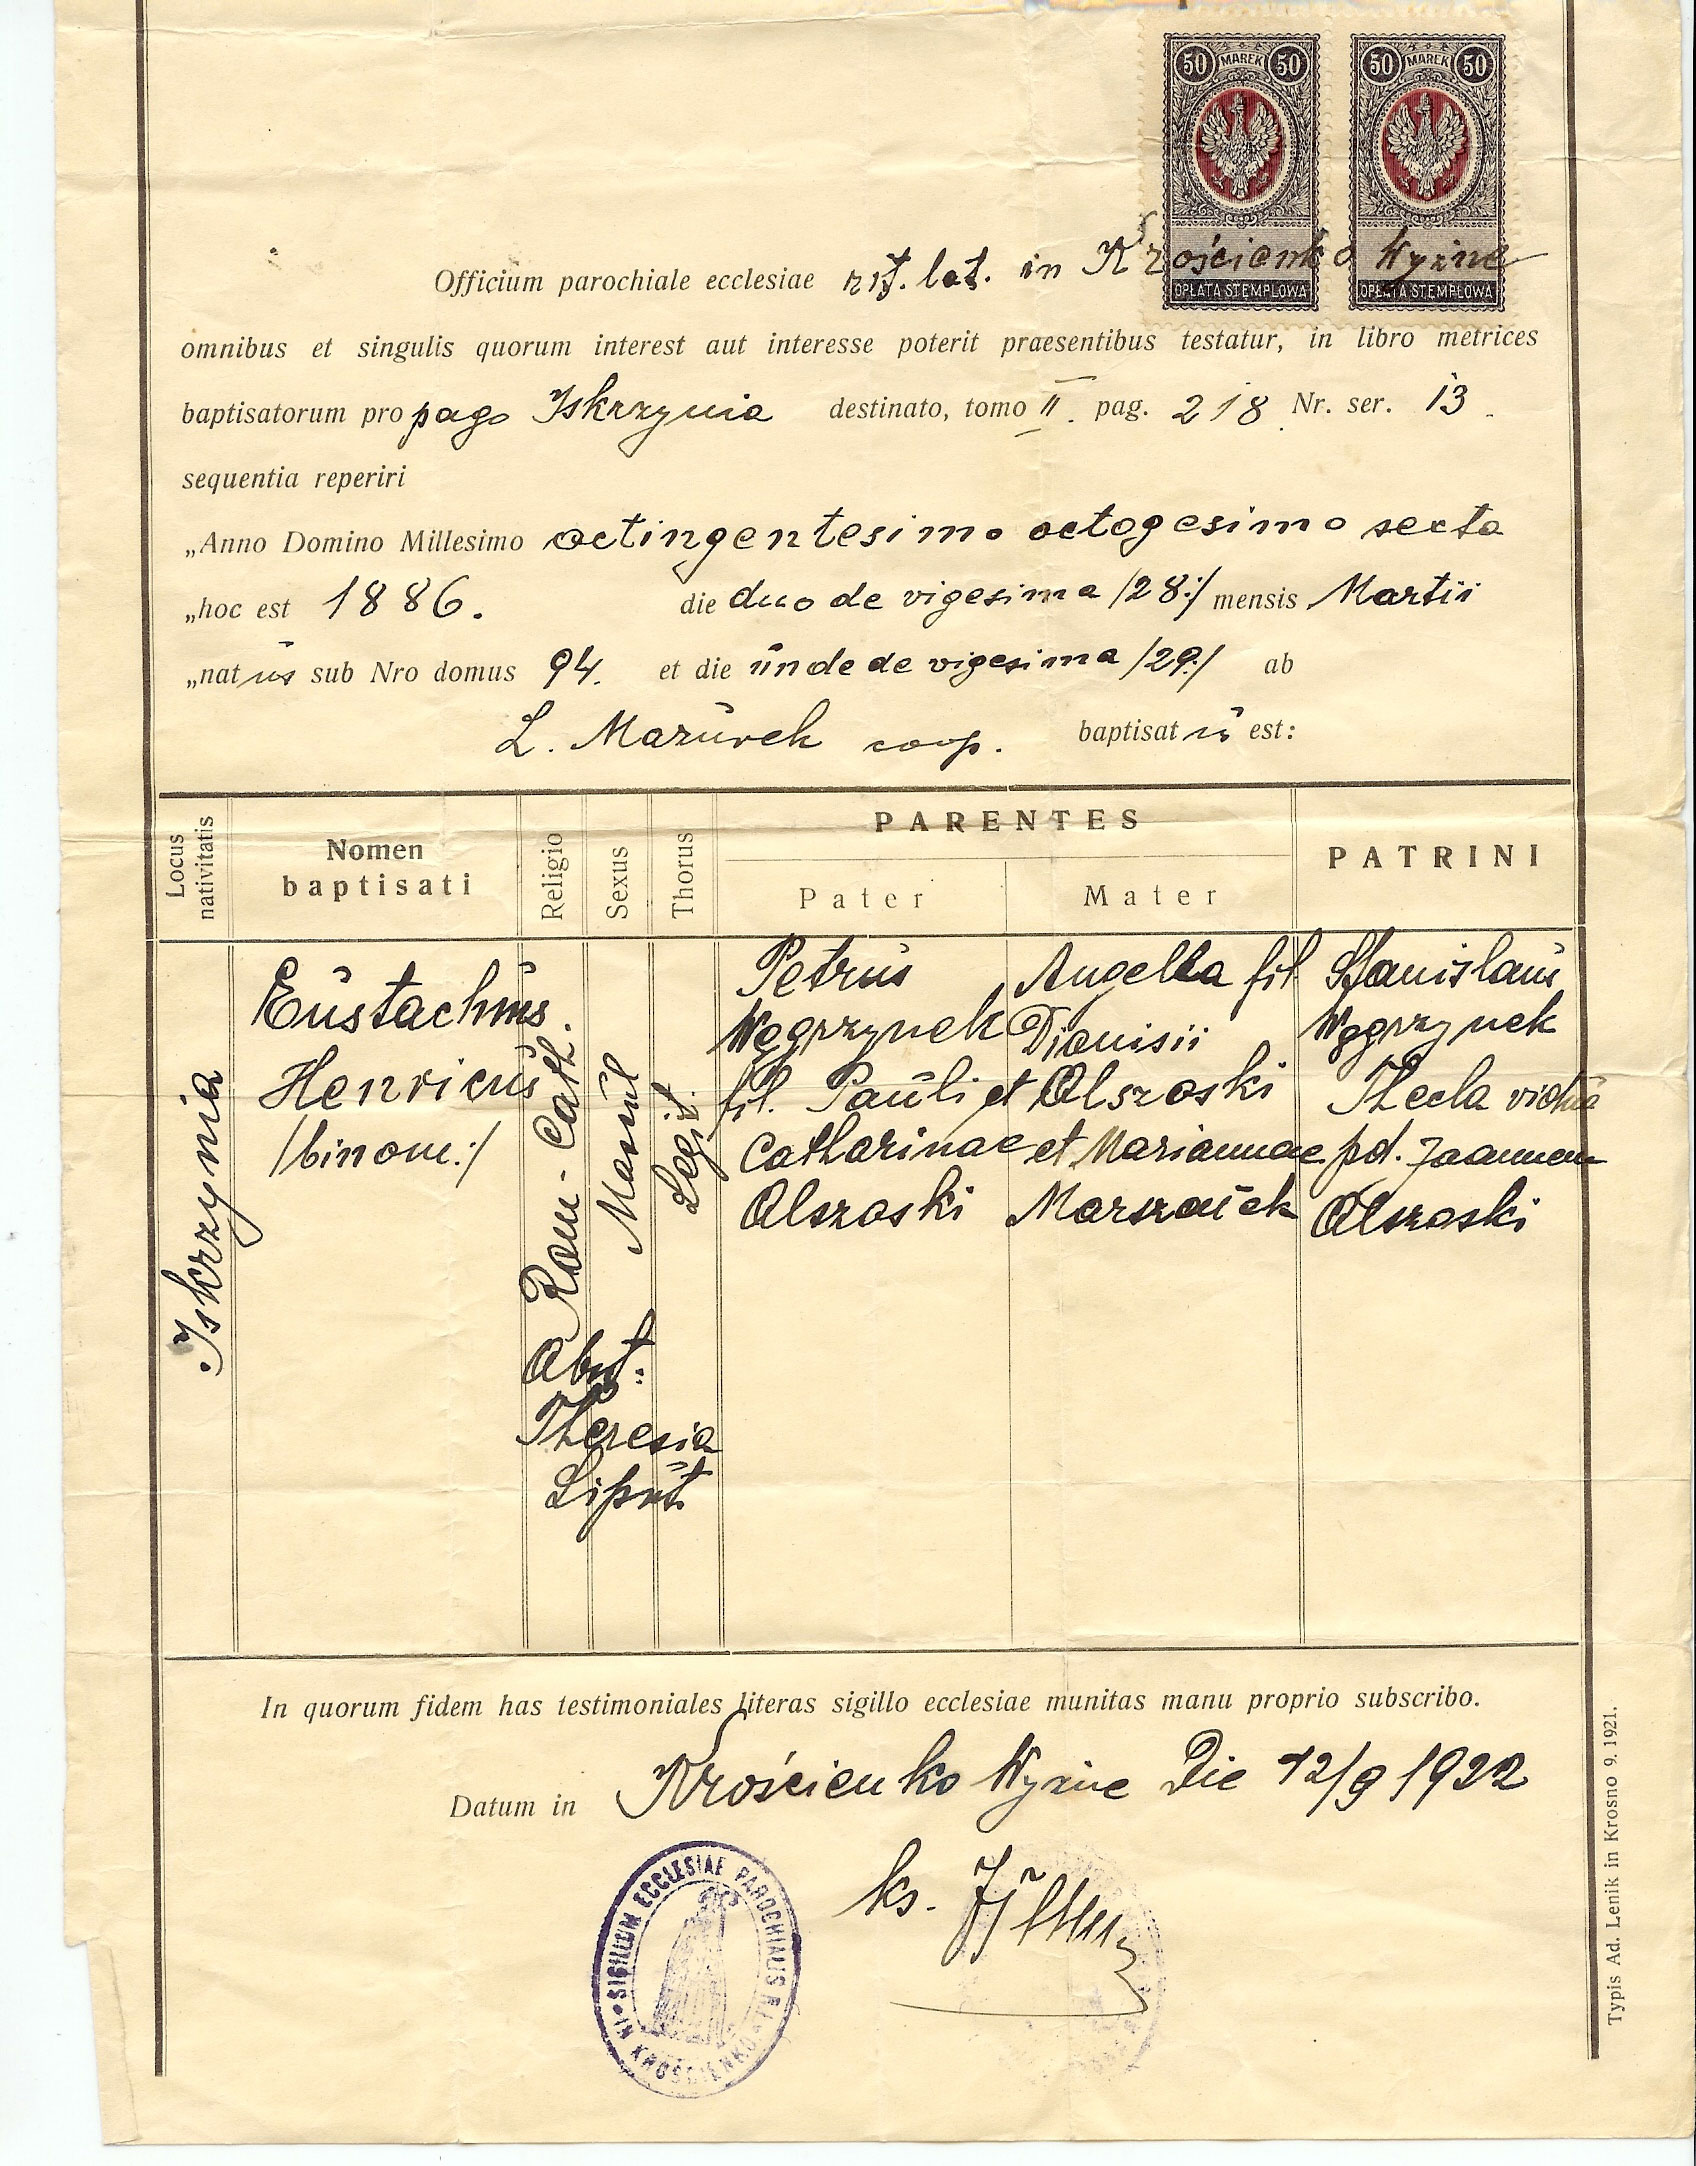 50 MAREK 50
50 MAREK 50
OPŁATA STEMPLOWA
OPŁATA STEMPLOWA
Officium parochiale ecclesiae rit. lat. in Krościenko Wyżne
omnibus et singulis quorum interest aut interesse poterit praesentibus testatur, in libro metrices
baptisatorum pro pago Iskrzynia destinato, tomo II. pag. 218 Nr. ser. 13.
sequentia reperiri
„Anno Domino Millesimo octingentesimo octogesimo sexto
„hoc est 1886. die duo de vigesima /28:/ mensis Martii
„natus sub Nro domus 94. et die unde de vigesima /29:/ ab
L. Mazurek coop. baptisatus est:
Locus nativitatis
Nomen baptisati
Religio
Sexus
Thorus
PARENTES
Pater
Mater
PATRINI
Iskrzynia
Eustachius.
Henricus
/binom:/
Rom-Cath
Mascul
Legit.
Petrus
Węgrzynek
fil. Pauli et
Catharinae
Olszoski
Angella fil
Dionisii
Olszoski
et Mariannae
Marszałek
Stanislaus
Węgrzynek
Thecla vidua
pd. Joannem
Olszoski
Obst:
Theresia
Liput
In quorum fidem has testimoniales literas sigillo ecclesiae munitas manu proprio subscribo.
Datum in Krościenko Wyżne Die 12/9 1922
ks.
SIGILLUM ECCLESIAE PAROCHIALIS R.L. IN KROŚCIENKO
Typis Ad. Lenik in Krosno 9. 1921.